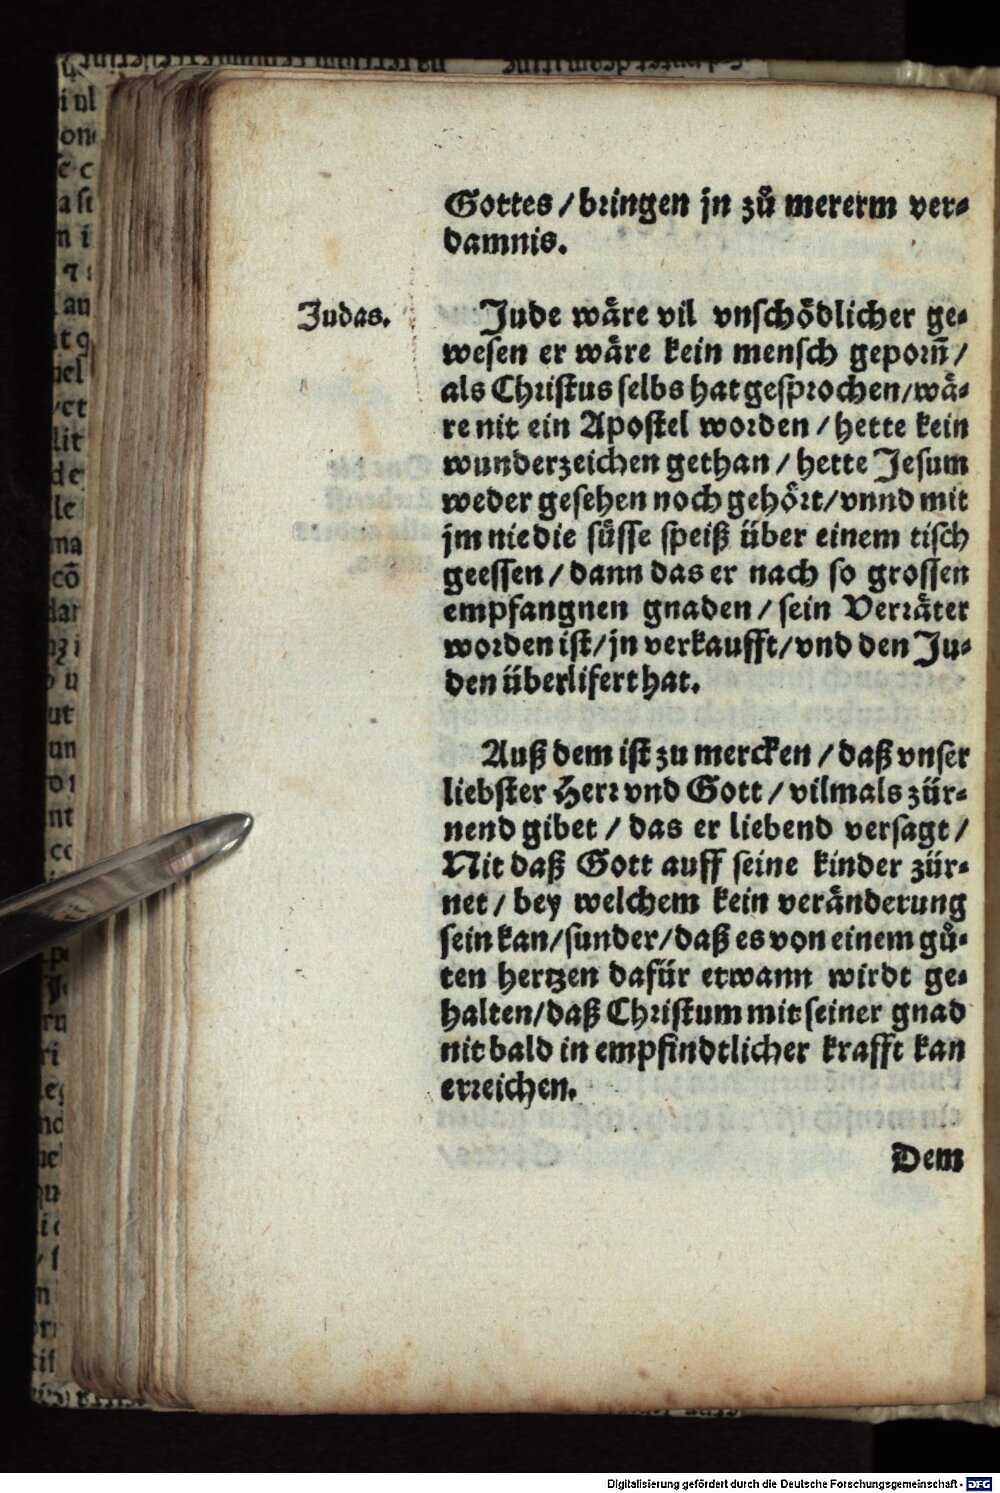 Gottes / bringen jn zů mererm ver⸗
damnis.
Judas.
Jude wäre vil vnschödlicher ge⸗
wesen er wäre kein mensch geporn̄ /
als Christus selbs hat gesprochen / wä⸗
re nit ein Apostel worden / hette kein
wunderzeichen gethan / hette Jesum
weder gesehen noch gehört / vnnd mit
jm nie die süsse speiß über einem tisch
geessen / dann das er nach so grossen
empfangnen gnaden / sein Verräter
worden ist / jn verkaufft / vnd den Ju⸗
den überlifert hat.
Auß dem ist zu mercken / daß vnser
liebster Herr vnd Gott / vilmals zür⸗
nend gibet / das er liebend versagt /
Nit daß Gott auff seine kinder zür⸗
net / bey welchem kein veränderung
sein kan / sunder / daß es von einem gů⸗
ten hertzen dafür etwann wirdt ge⸗
halten / daß Christum mit seiner gnad
nit bald in empfindtlicher krafft kan
erreichen.
Dem
Digitalisierung gefördert durch die Deutsche Forschungsgemeinschaft - DFG